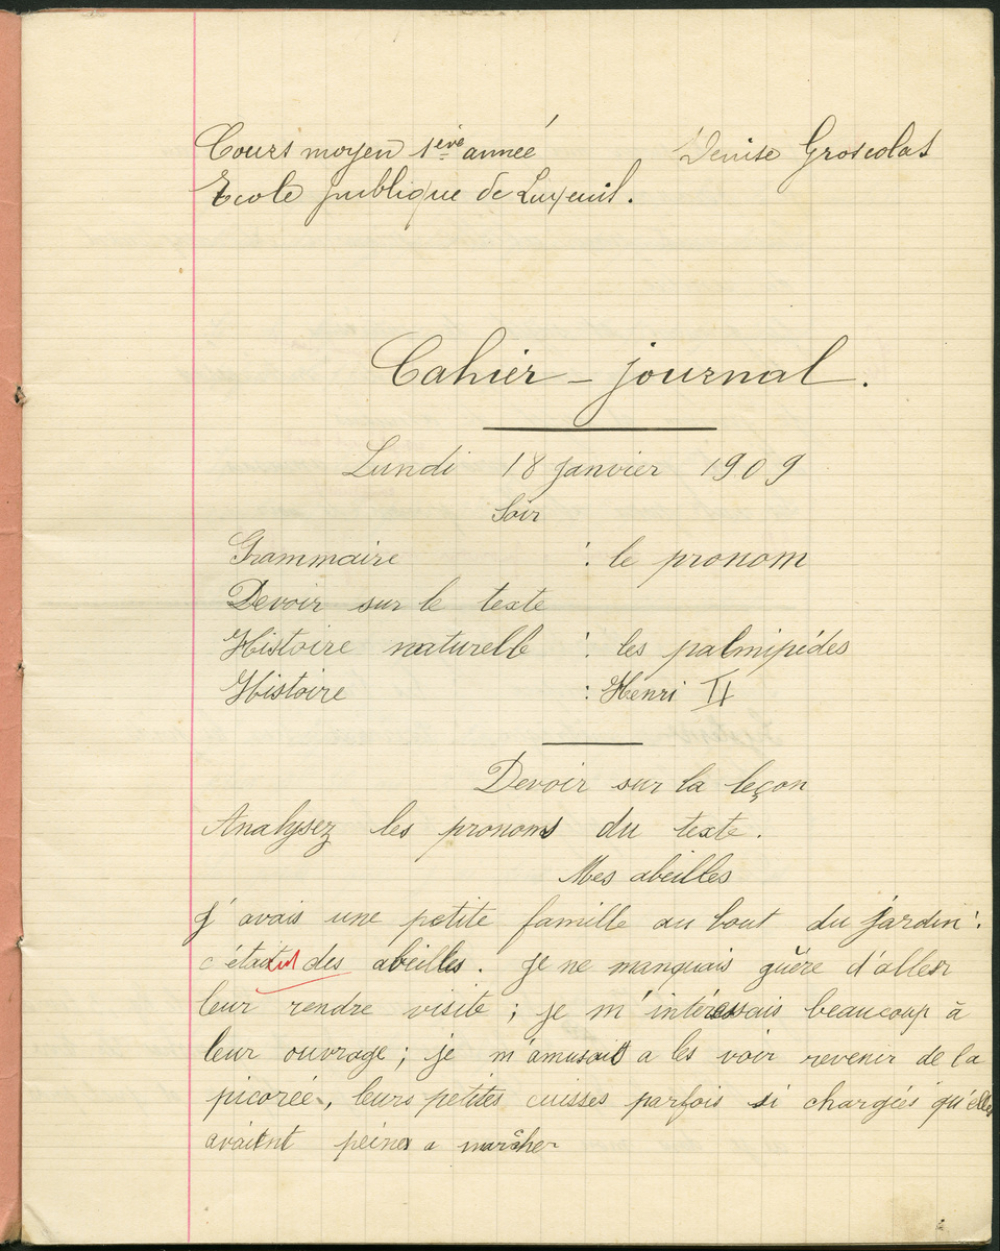 Cours moyen 1ère année Denise Groscolas
Ecole publique de Luxeuil.
Cahier - journal.
Lundi 18 Janvier 1909
Soir
Grammaire : le pronom
Devoir sur le texte
Histoire naturelle : les palmipédes
Histoire : Henri II
Devoir sur la leçon
Analysez les pronoms du texte.
Mes abeilles
J'avais une petite famille au bout du jardin :
c'étaient des abeilles. Je ne manquais guère d'aller
leur rendre visite ; je m'intéressais beaucoup à
leur ouvrage ; je m'amusait a les voir revenir de la
picorée, leurs petites cuisses parfois si chargées qu'elles
avaient peine a marcher